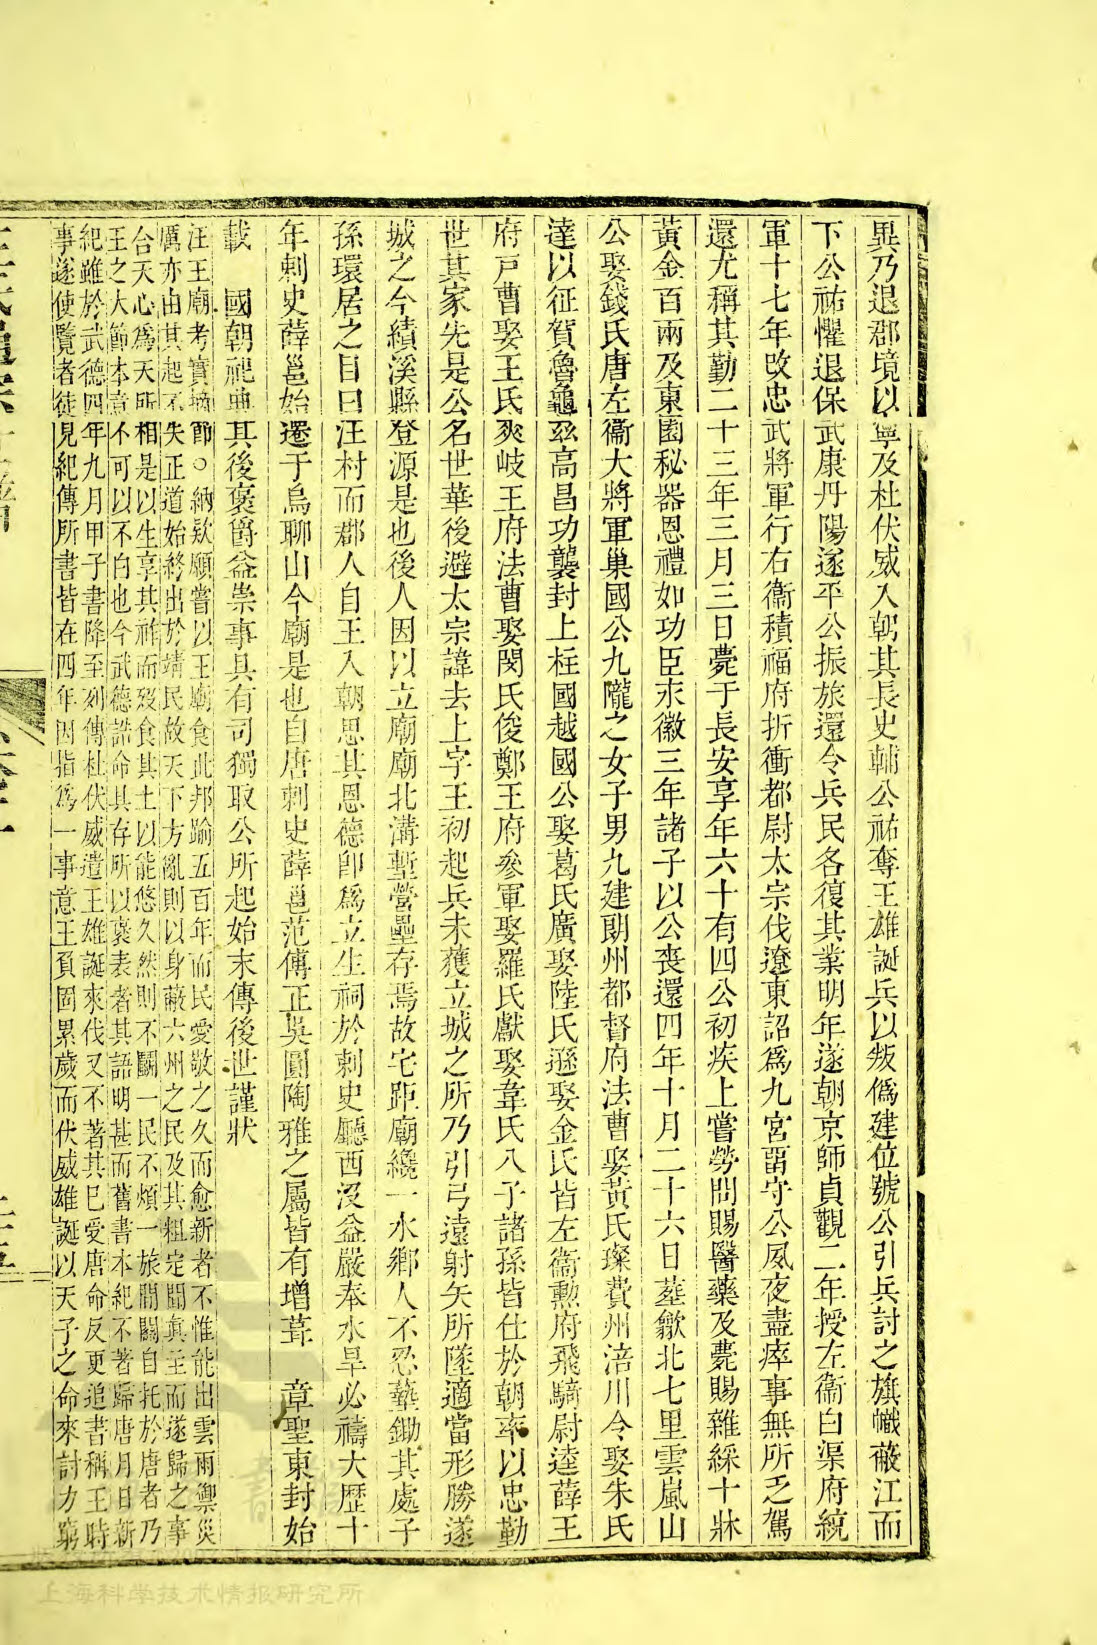 異乃退郡境以寧及杜伏威入朝其長史輔公祐奪王雄誕兵以叛僞建位號公引兵討之旗幟蔽江而
下公祐懼退保武康丹陽遂平公振旅還令兵民各復其業明年遂朝京師貞觀二年授左衞白渠府統
軍十七年改忠武將軍行右衞積福府折衝都尉太宗伐遼東詔爲九宮留守公夙夜盡瘁事無所乏駕
還尤稱其勤二十三年三月三日薨于長安享年六十有四公初疾上嘗勞問賜醫藥及薨賜雜綵十牀
黃金百兩及東園秘器恩禮如功臣永徽三年諸子以公喪還四年十月二十六日塟歙北七里雲嵐山
公娶錢氏唐左衞大將軍巢國公九隴之女子男九建朗州都督府法曹娶黃氏璨費州涪川令娶朱氏
達以征賀魯龜茲高昌功襲封上柱國越國公娶葛氏廣娶陸氏遜娶金氏皆左衞勲府飛騎尉逵薛王
府戸曹娶王氏爽岐王府法曹娶閔氏俊鄭王府參軍娶羅氏獻娶韋氏八子諸孫皆仕於朝率以忠勤
世其家先是公名世華後避太宗諱去上字王初起兵未獲立城之所乃引弓遠射矢所墜適當形勝遂
城之今績溪縣登源是也後人因以立廟廟北溝塹營壘存焉故宅距廟纔一水鄉人不忍蓺鋤其處子
孫環居之目曰汪村而郡人自王入朝思其恩德卽爲立生祠於刺史廳西沒益嚴奉水旱必禱大歷十
年刺史薛邕始遷于烏聊山今廟是也自唐刺史薛邕范傳正吳圓陶雅之屬皆有增葺　章聖東封始
載　國朝祀典其後褒爵益崇事具有司獨取公所起始末傳後世謹狀
汪王廟考實節○納欵願嘗以王廟食此邦踰五百年而民愛敬之久而愈新者不惟能出雲雨禦災
厲亦由其起不失正道始終出於靖民故天下方亂則以身蔽六州之民及其粗定聞眞主而遂歸之事
合天心爲天所相是以生享其祚而歿食其土以能悠久然則不鬭一民不煩一旅間關自托於唐者乃
王之大節本意不可以不白也今武德誥命具存所以褒表者其語明甚而舊書本紀不著歸唐月日新
紀雖於武德四年九月甲子書降至列傳杜伏威遣王雄誕來伐又不著其已受唐命反更追書稱王時
事遂使覽者徒見紀傳所書皆在四年因指爲一事意王負固累歲而伏威雄誕以天子之命來討力窮
上海科学技术情报研究所